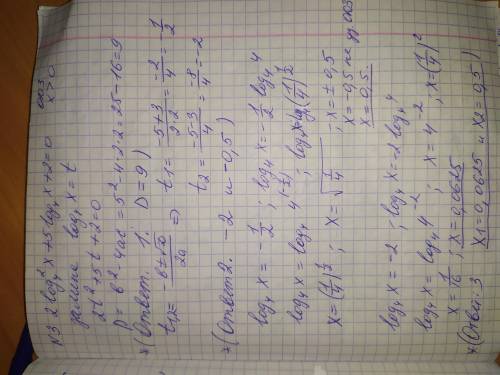 N3 2 log₄² x + 5 log₄ x + 2 = 0
x > 0
замена log₄ x = t
2t² + 5t + 2 = 0
D = b² - 4ac = 5² - 4·2·2 = 25 - 16 = 9
*(Ответ 1: D = 9)
t₁,₂ = (-b ± √D)/2a ⇒ t₁ = (-5+3)/(2·2) = -2/4 = -1/2
t₂ = (-5-3)/4 = -8/4 = -2
*(Ответ 2. -2 и -0,5)
log₄ x = -1/2 ; log₄ x = -1/2 log₄ 4
log₄ x = log₄ 4^(-1/2) ; log₄ x = log (1/4)^(1/2)
x = (1/4)^(1/2) ; x = √(1/4) ; x = ± 0,5
x = -0,5 не уд. ОООЗ
x = 0,5
log₄ x = -2 ; log₄ x = -2 log₄ 4
log₄ x = log₄ 4⁻² ; x = 4⁻² ; x = (1/4)²
x = 1/16 ; x = 0,0625
*(Ответ. 3 x₁ = 0,0625 и x₂ = 0,5)